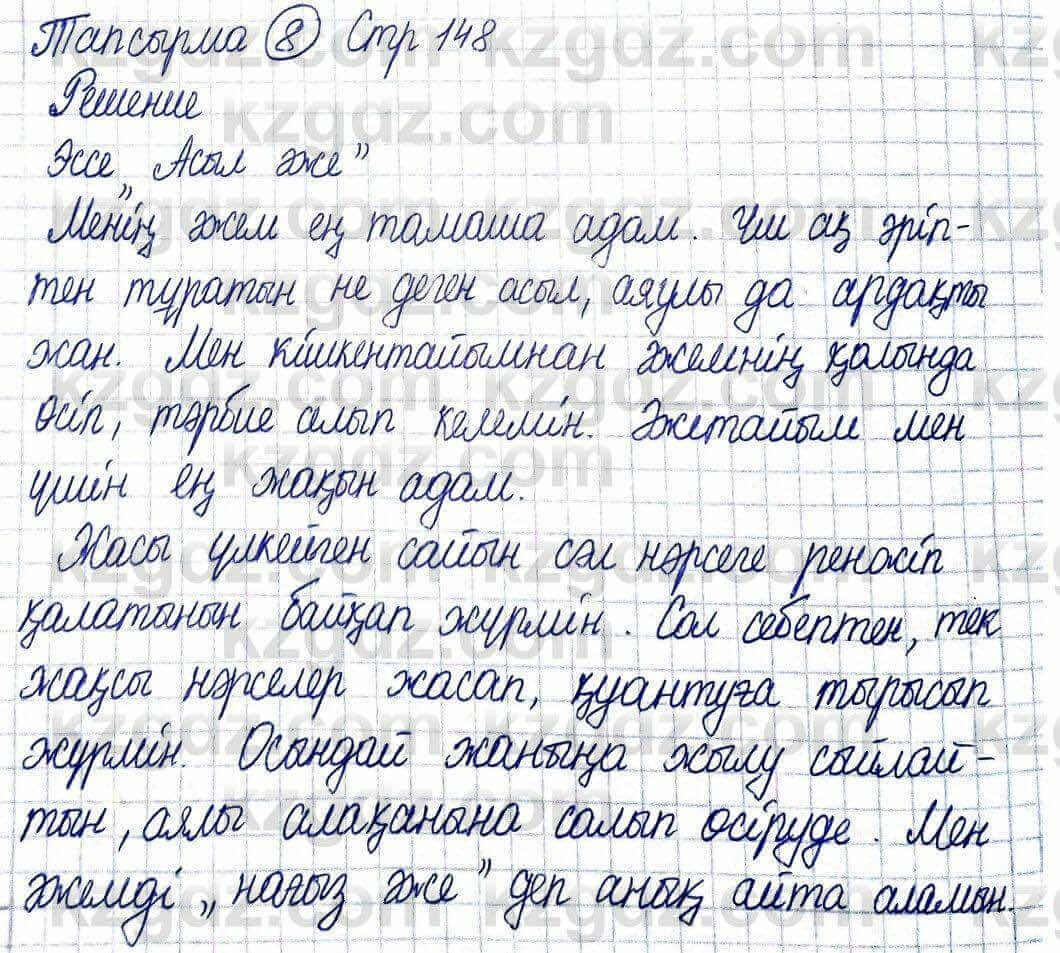 Тапсырма 8 Стр 148
Решение
Эссе „Асыл әже”
Менің әжем ең тамаша адам. Үш ақ әріп-
тен тұратын не деген асыл, аяулы да ардақты
жан. Мен кішкентайымнан әжемнің қолында
өсіп, тәрбие алып келемін. Әжетайым мен
үшін ең жақын адам.
Жасы үлкейген сайын сәл нәрсеге ренжіп
қалатынын байқап жүрмін. Сол себептен, тек
жақсы нәрселер жасап, қуантуға тырысып
жүрмін. Осындай жаныңа жылу сыйлай-
тын, аялы алақанына салып өсіруде. Мен
әжемді „нағыз әже” деп анық айта аламын.